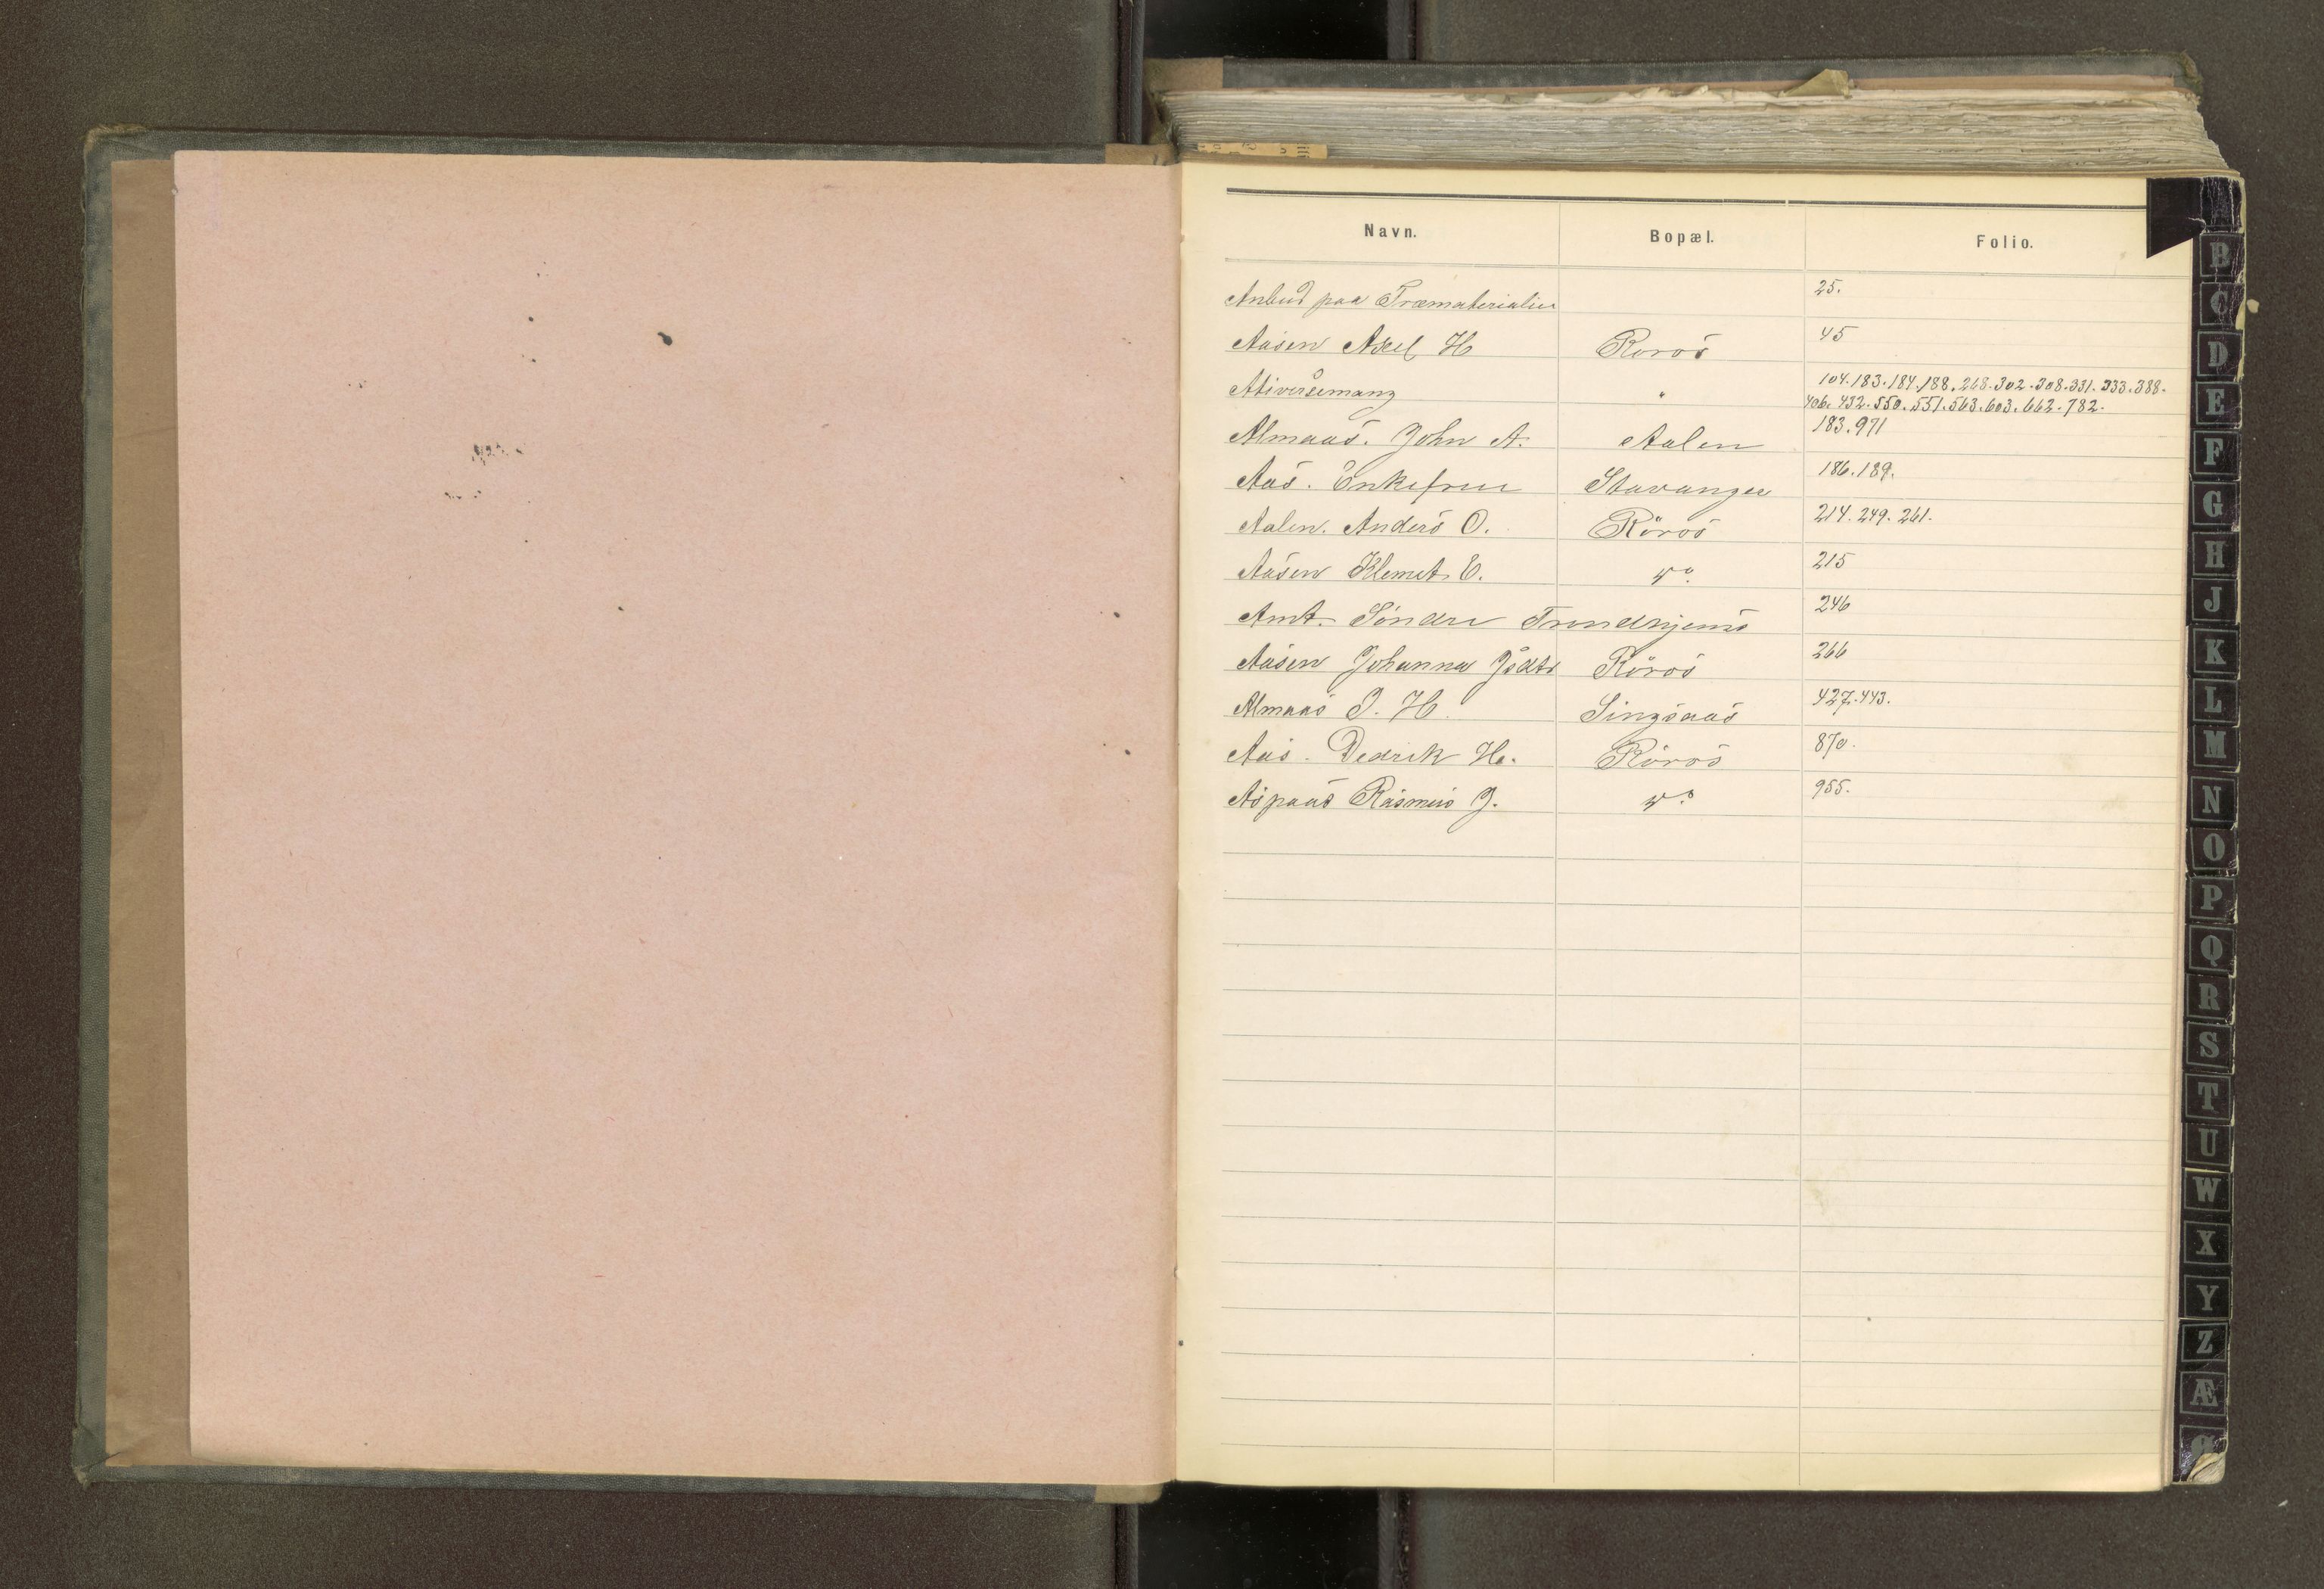 Navn. Bopæl. Folio.
Anbud paa Træmaterialier 25.
Aasen Axel H Roros 45
" 104.183.184.188.248.302.308.331.333.388.
406.432.550.551.563.603.662.782.
Almaas. John A. Aalen 183.971
Aas. Enkefru Stavanger 186.189.
Aalen. Anders O. Röros 214.249.261.
Aasen Klemet E. do. 215
Amt. Söndre Trondhjems 246
Aasen Johanna Jsdtr Röros 266
Almaas J. H. Singsaas 427.443.
Aas. Dedrik H. Röros 870.
Aspaas Rasmus J. do. 955.
B
C
D
E
F
G
H
J
K
L
M
N
O
P
Q
R
S
T
U
W
X
Y
Z
Æ
Ø